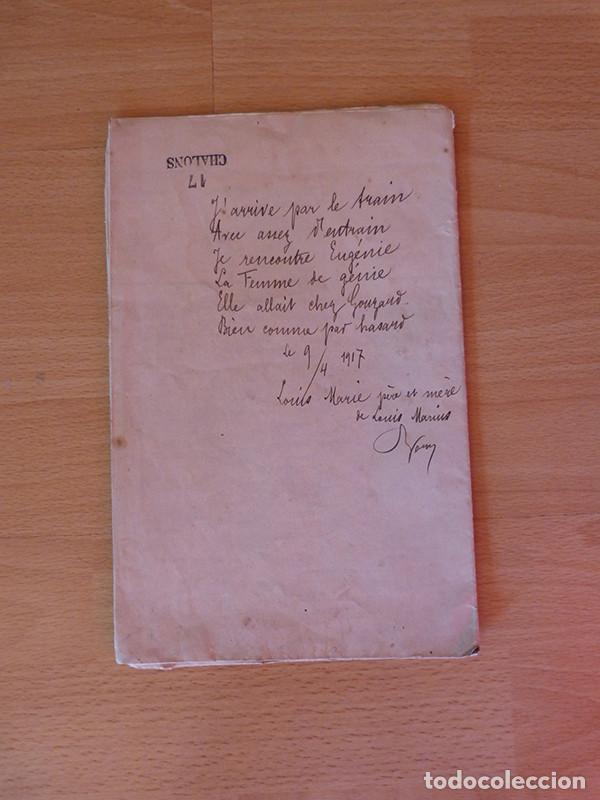 CHALONS
17
J'arrive par le train
Avec assez d'entrain
Je rencontre Eugénie
La Femme de génie
Elle allait chez Gouzand.
Bien comme par hasard
Le 9/4 1917
Louis Marie père et mère
de Louis Marius
todocoleccion
todocoleccion.net